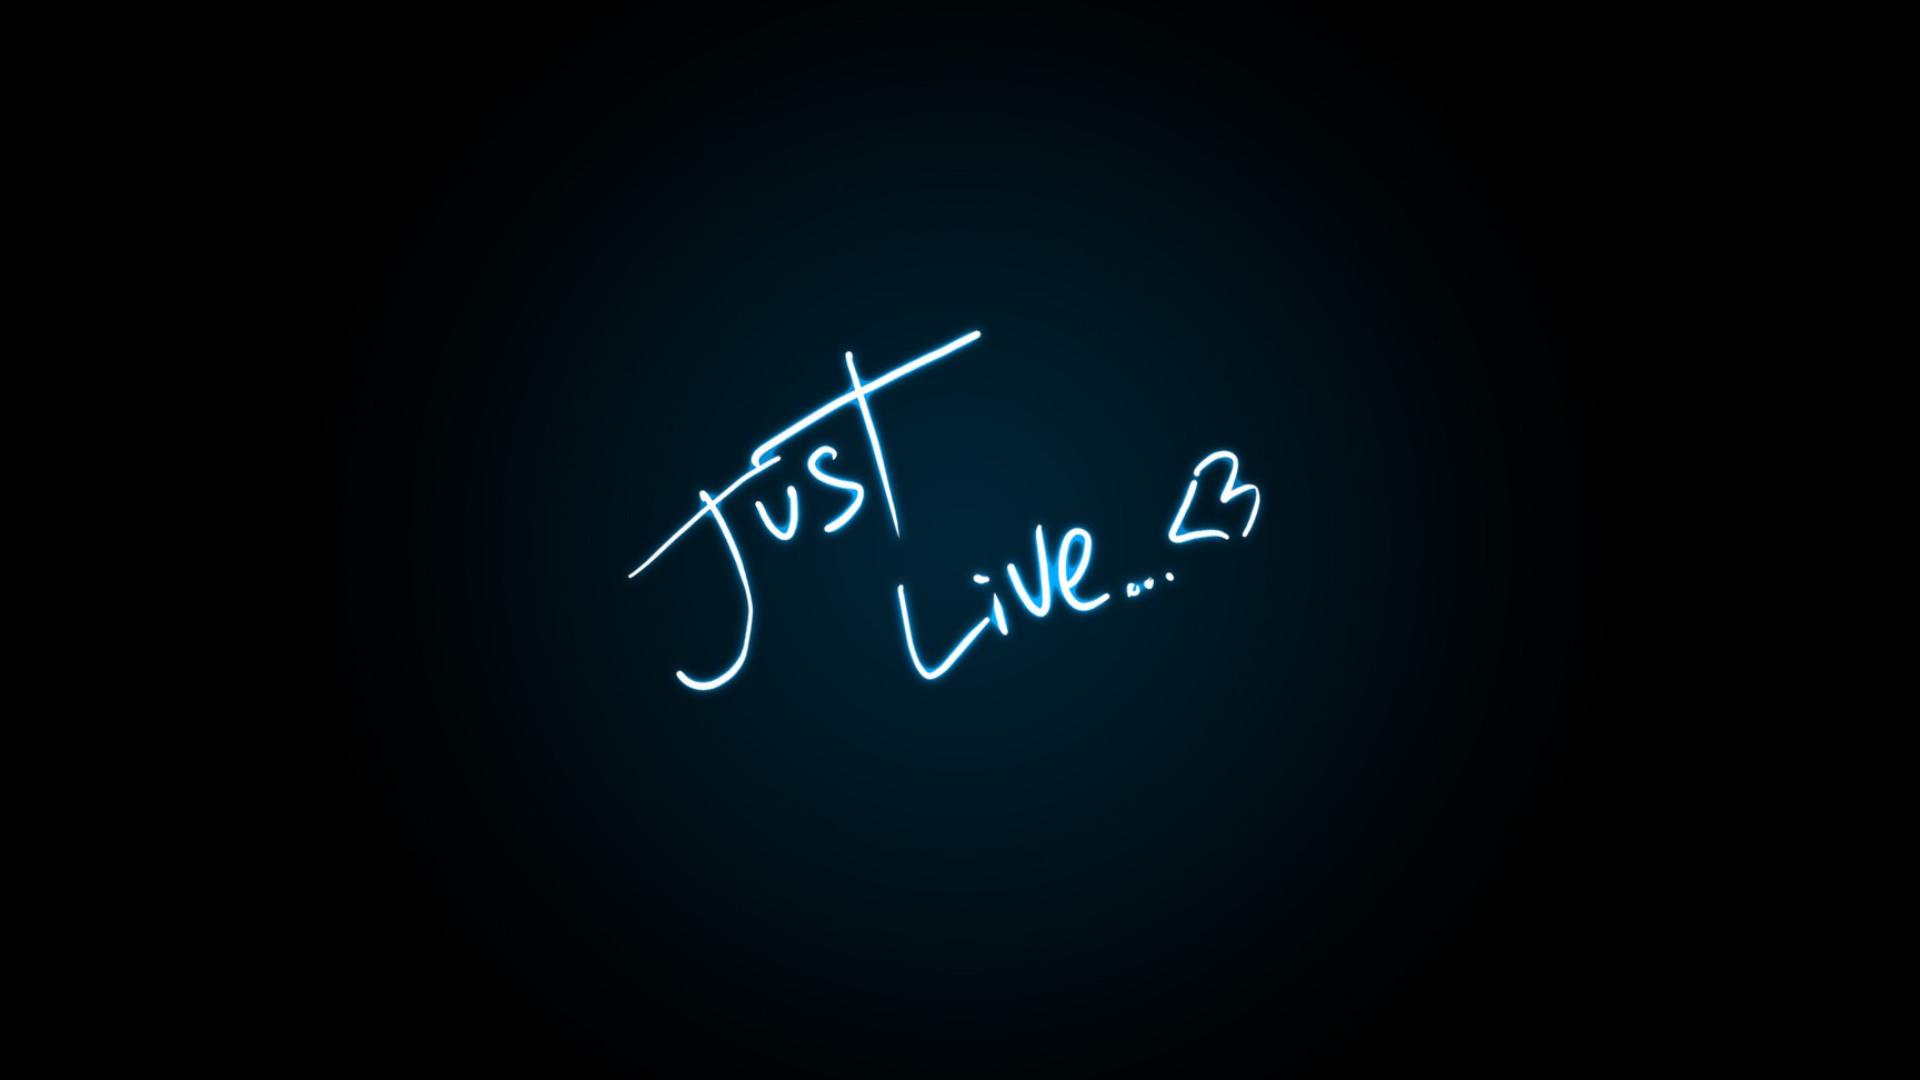 Just
Live... <3